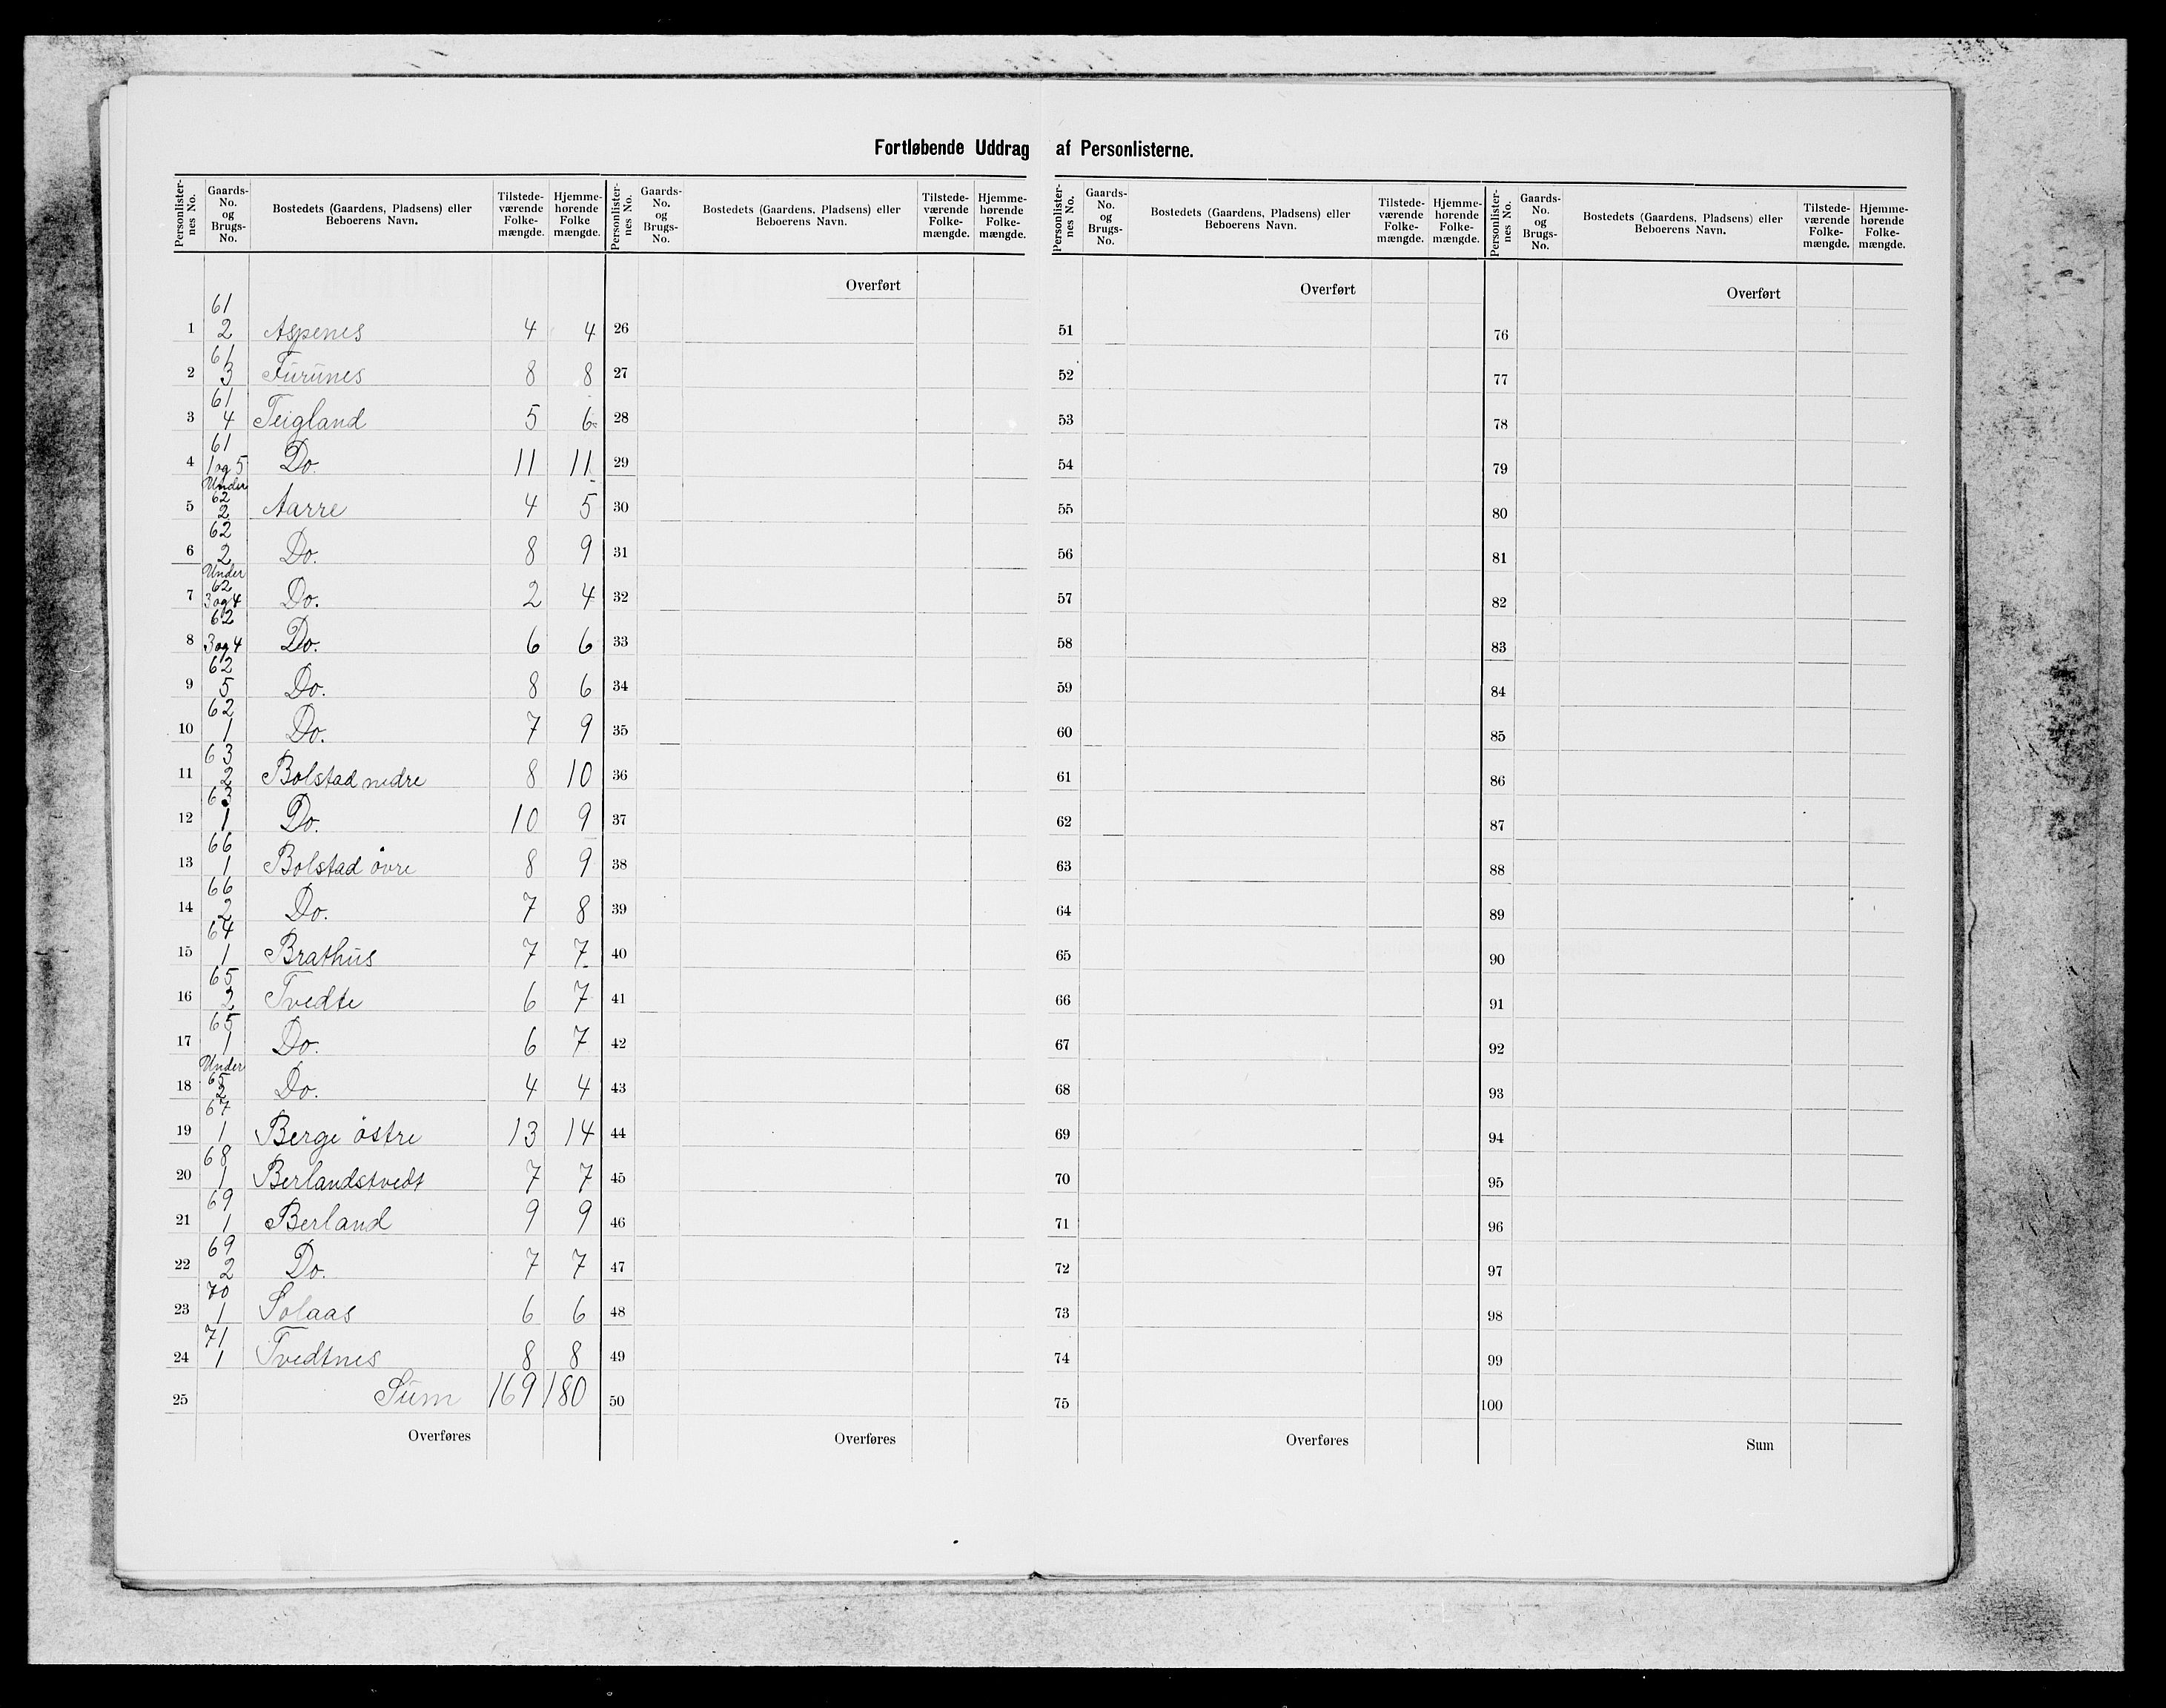 Fortløbende Uddrag af Personlisterne.
Personlister-nes No. | Gaards-No. og Brugs-No. | Bostedets (Gaardens, Pladsens) eller Beboerens Navn. | Tilstede-værende Folke-mængde. | Hjemme-hørende Folke mængde. | Personlister-nes No. | Gaards-No. og Brugs-No. | Bostedets (Gaardens, Pladsens) eller Beboerens Navn. | Tilstede-værende Folke-mængde. | Hjemme-hørende Folke-mængde. | Personlister-nes No. | Gaards-No. og Brugs-No. | Bostedets (Gaardens, Pladsens) eller Beboerens Navn. | Tilstede-værende Folke-mængde. | Hjemme-hørende Folke-mængde. | Personlister-nes No. | Gaards-No. og Brugs-No. | Bostedets (Gaardens, Pladsens) eller Beboerens Navn. | Tilstede-værende Folke-mængde. | Hjemme-hørende Folke-mængde.
Overført Overført Overført
1 61 2 Aspenes 4 4 26 51 76
2 61 3 Furunes 8 8 27 52 77
3 61 4 Teigland 5 6 28 53 78
4 61 1 og 5 Do. 11 11 29 54 79
5 Under 62 2 Aarre 4 5 30 55 80
6 62 2 Do. 8 9 31 56 81
7 Under 62 3 og 4 Do. 2 4 32 57 82
8 62 3 og 4 Do. 6 6 33 58 83
9 62 5 Do. 8 6 34 59 84
10 62 1 Do. 7 9 35 60 85
11 63 2 Bolstad nedre 8 10 36 61 86
12 63 1 Do. 10 9 37 62 87
13 66 1 Bolstad övre 8 9 38 63 88
14 66 2 Do. 7 8 39 64 89
15 64 1 Brathus 7 7 40 65 90
16 65 2 Tvedte 6 7 41 66 91
17 65 1 Do. 6 7 42 67 92
18 Under 65 2 Do. 4 4 43 68 93
19 67 1 Berge östre 13 14 44 69 94
20 68 1 Berlandstvedt 7 7 45 70 95
21 69 1 Berland 9 9 46 71 96
22 69 2 Do. 7 7 47 72 97
23 70 1 Solaas 6 6 48 73 98
24 71 1 Tvedtnes 8 8 49 74 99
25 Sum 169 180 50 75 100
Overføres Overføres Overføres Sum